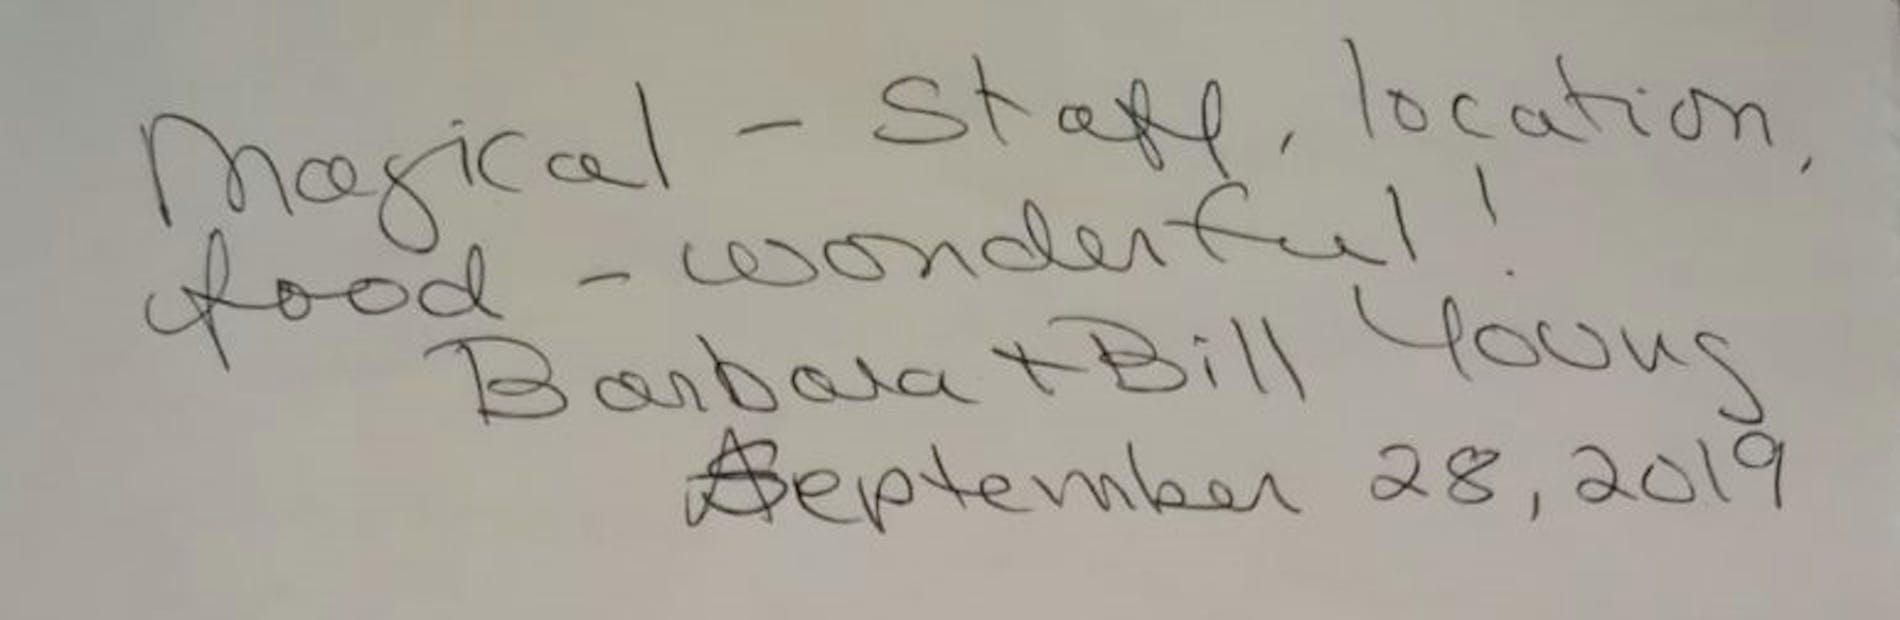 Magical - Staff, location,
food - wonderful!
Barbara + Bill Young
September 28, 2019